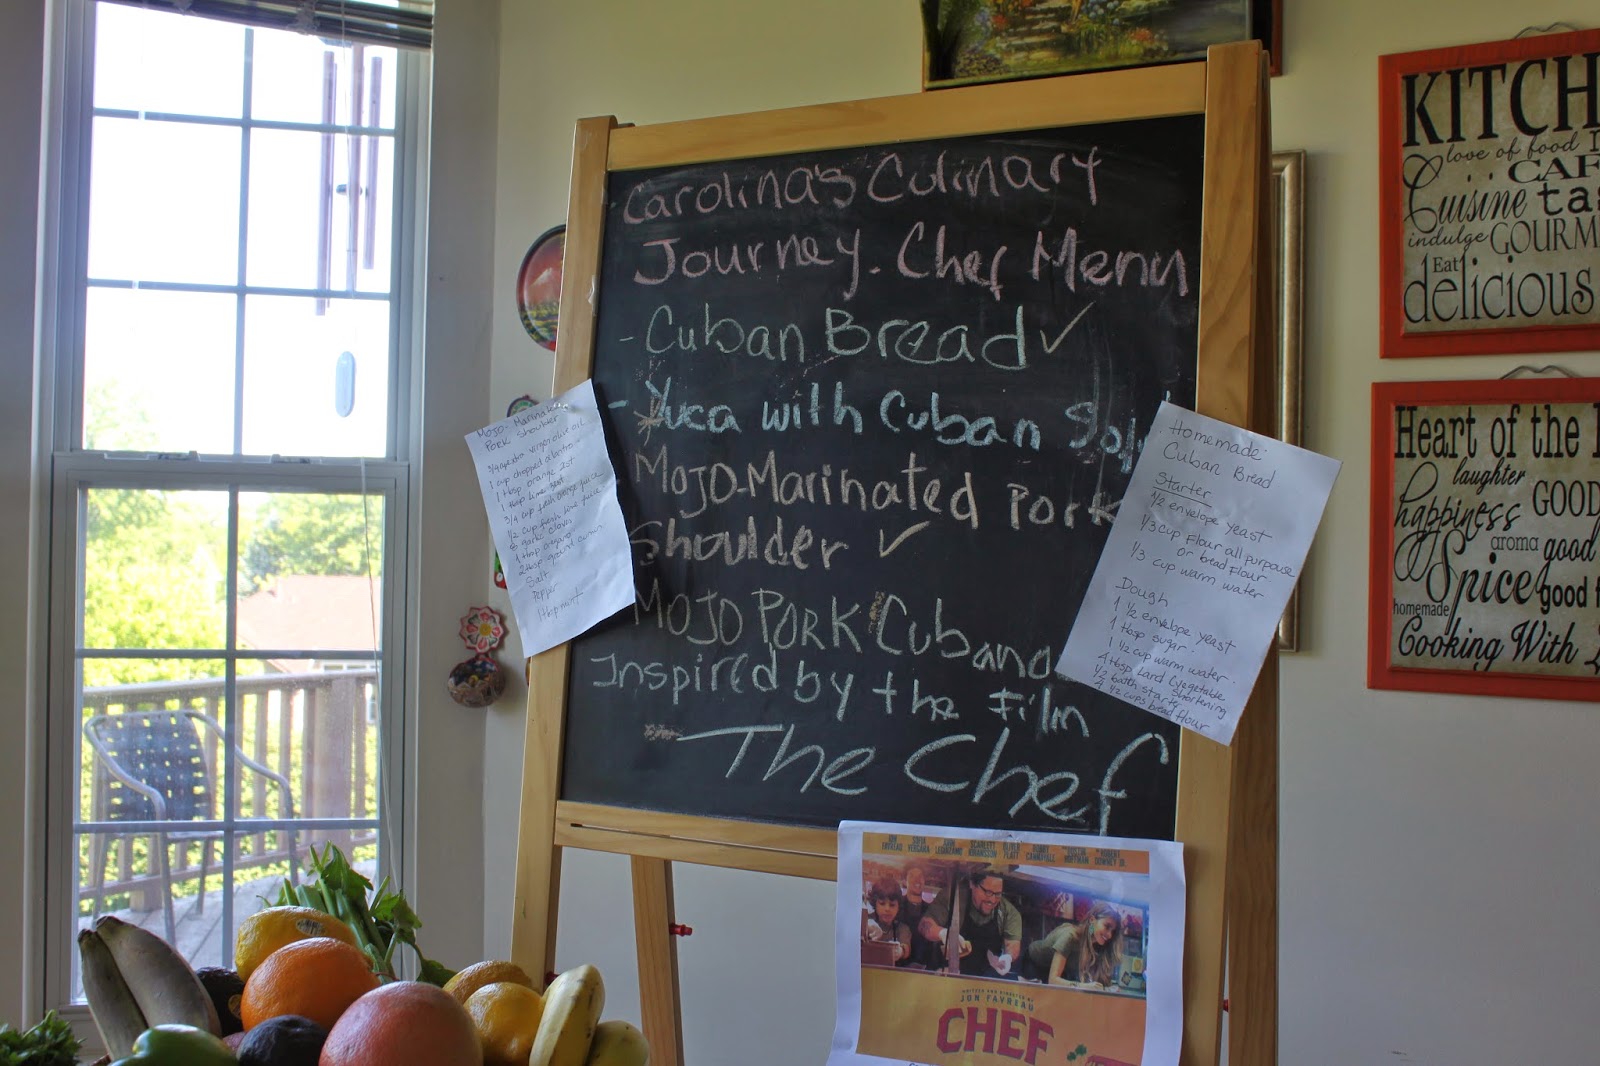 Carolina's Culinary
Journey. Chef Menu
- Cuban Bread ✓
- Yuca with Cuban
Mojo-Marinated Pork
Shoulder ✓
Mojo Pork Cubano
Inspired by the Film
The Chef
Mojo-Marinated
Pork Shoulder
3/4 cup extra virgin olive oil
1 cup chopped cilantro
1 tbsp orange zest
1 tbsp lime zest
3/4 cup fresh orange juice
1/2 cup fresh lime juice
8 garlic cloves
1 tbsp oregano
2 tbsp ground cumin
Salt
Pepper
1 tbsp mint
Homemade
Cuban Bread
Starter
1/2 envelope yeast
1/3 cup flour all purpouse
or bread flour
1/3 cup warm water
Dough
1 1/2 envelope yeast
1 tbsp sugar
1 1/2 cup warm water
4 tbsp lard (vegetable
shortening
1/2 batch starter
4 1/2 cups bread flour
JON FAVREAU
SOFIA VERGARA
JOHN LEGUIZAMO
SCARLETT JOHANSSON
OLIVER PLATT
BOBBY CANNAVALE
DUSTIN HOFFMAN
ROBERT DOWNEY JR.
WRITTEN AND DIRECTED BY
JON FAVREAU
CHEF
KITCH
love of food
CAF
Cuisine tas
indulge GOURM
Eat
delicious
Heart of the
laughter
happiness GOOD
aroma good
Spice
homemade good f
Cooking With